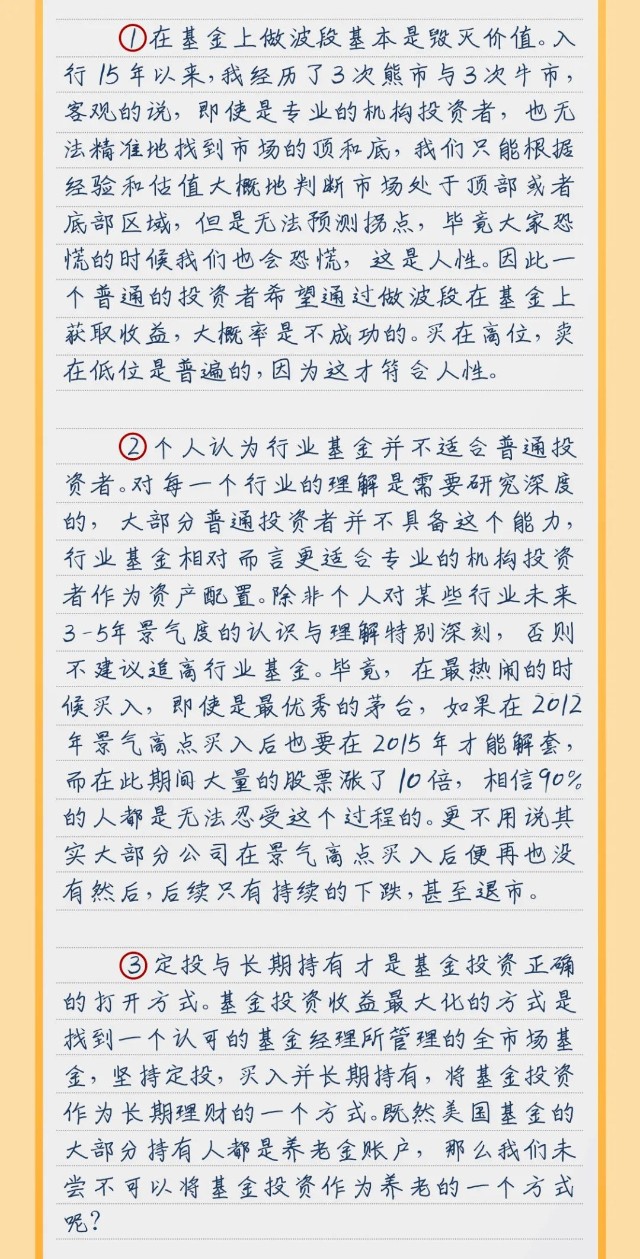 ①在基金上做波段基本是毁灭价值。入
行15年以来,我经历了3次熊市与3次牛市,
客观的说,即使是专业的机构投资者,也无
法精准地找到市场的顶和底,我们只能根据
经验和估值大概地判断市场处于顶部或者
底部区域,但是无法预测拐点,毕竟大家恐
慌的时候我们也会恐慌,这是人性。因此一
个普通的投资者希望通过做波段在基金上
获取收益,大概率是不成功的。买在高位,卖
在低位是普遍的,因为这才符合人性。
②个人认为行业基金并不适合普通投
资者。对每一个行业的理解是需要研究深度
的,大部分普通投资者并不具备这个能力,
行业基金相对而言更适合专业的机构投资
者作为资产配置。除非个人对某些行业未来
3-5年景气度的认识与理解特别深刻,否则
不建议追高行业基金。毕竟,在最热闹的时
候买入,即使是最优秀的茅台,如果在2012
年景气高点买入后也要在2015年才能解套,
而在此期间大量的股票涨了10倍,相信90%
的人都是无法忍受这个过程的。更不用说其
实大部分公司在景气高点买入后便再也没
有然后,后续只有持续的下跌,甚至退市。
③定投与长期持有才是基金投资正确
的打开方式。基金投资收益最大化的方式是
找到一个认可的基金经理所管理的全市场基
金,坚持定投,买入并长期持有,将基金投资
作为长期理财的一个方式。既然美国基金的
大部分持有人都是养老金账户,那么我们未
尝不可以将基金投资作为养老的一个方式
呢?